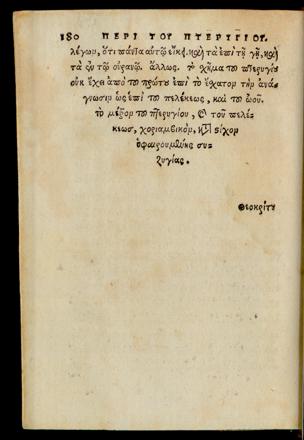 180 ΠΕΡΙ ΤΟΥ ΠΤΕΡΥΓΙΟΥ.
λέγων, ὅτι πάντα αὐτῷ εἴκῃ. καὶ τὰ ἐπὶ τῇ γῇ, καὶ
τὰ ἐν τῷ οὐρανῷ. ἄλλως. τὸ χῆμα τοῦ πτερυγίου
οὐκ ἔχει ἀπὸ τοῦ πρώτου ἐπὶ τὸ ἔχατον τὴν ἀνά-
γνωσιν ὡς ἐπὶ τοῦ πελέκεως, καὶ τοῦ ὠοῦ.
τὸ μέτρον τοῦ πτερυγίου, καὶ τοῦ πελέ-
κεως, χοριαμβικὸν, κατὰ στίχον
ὑφαιρουμένης συ-
ζυγίας.
Θεοκρίτου